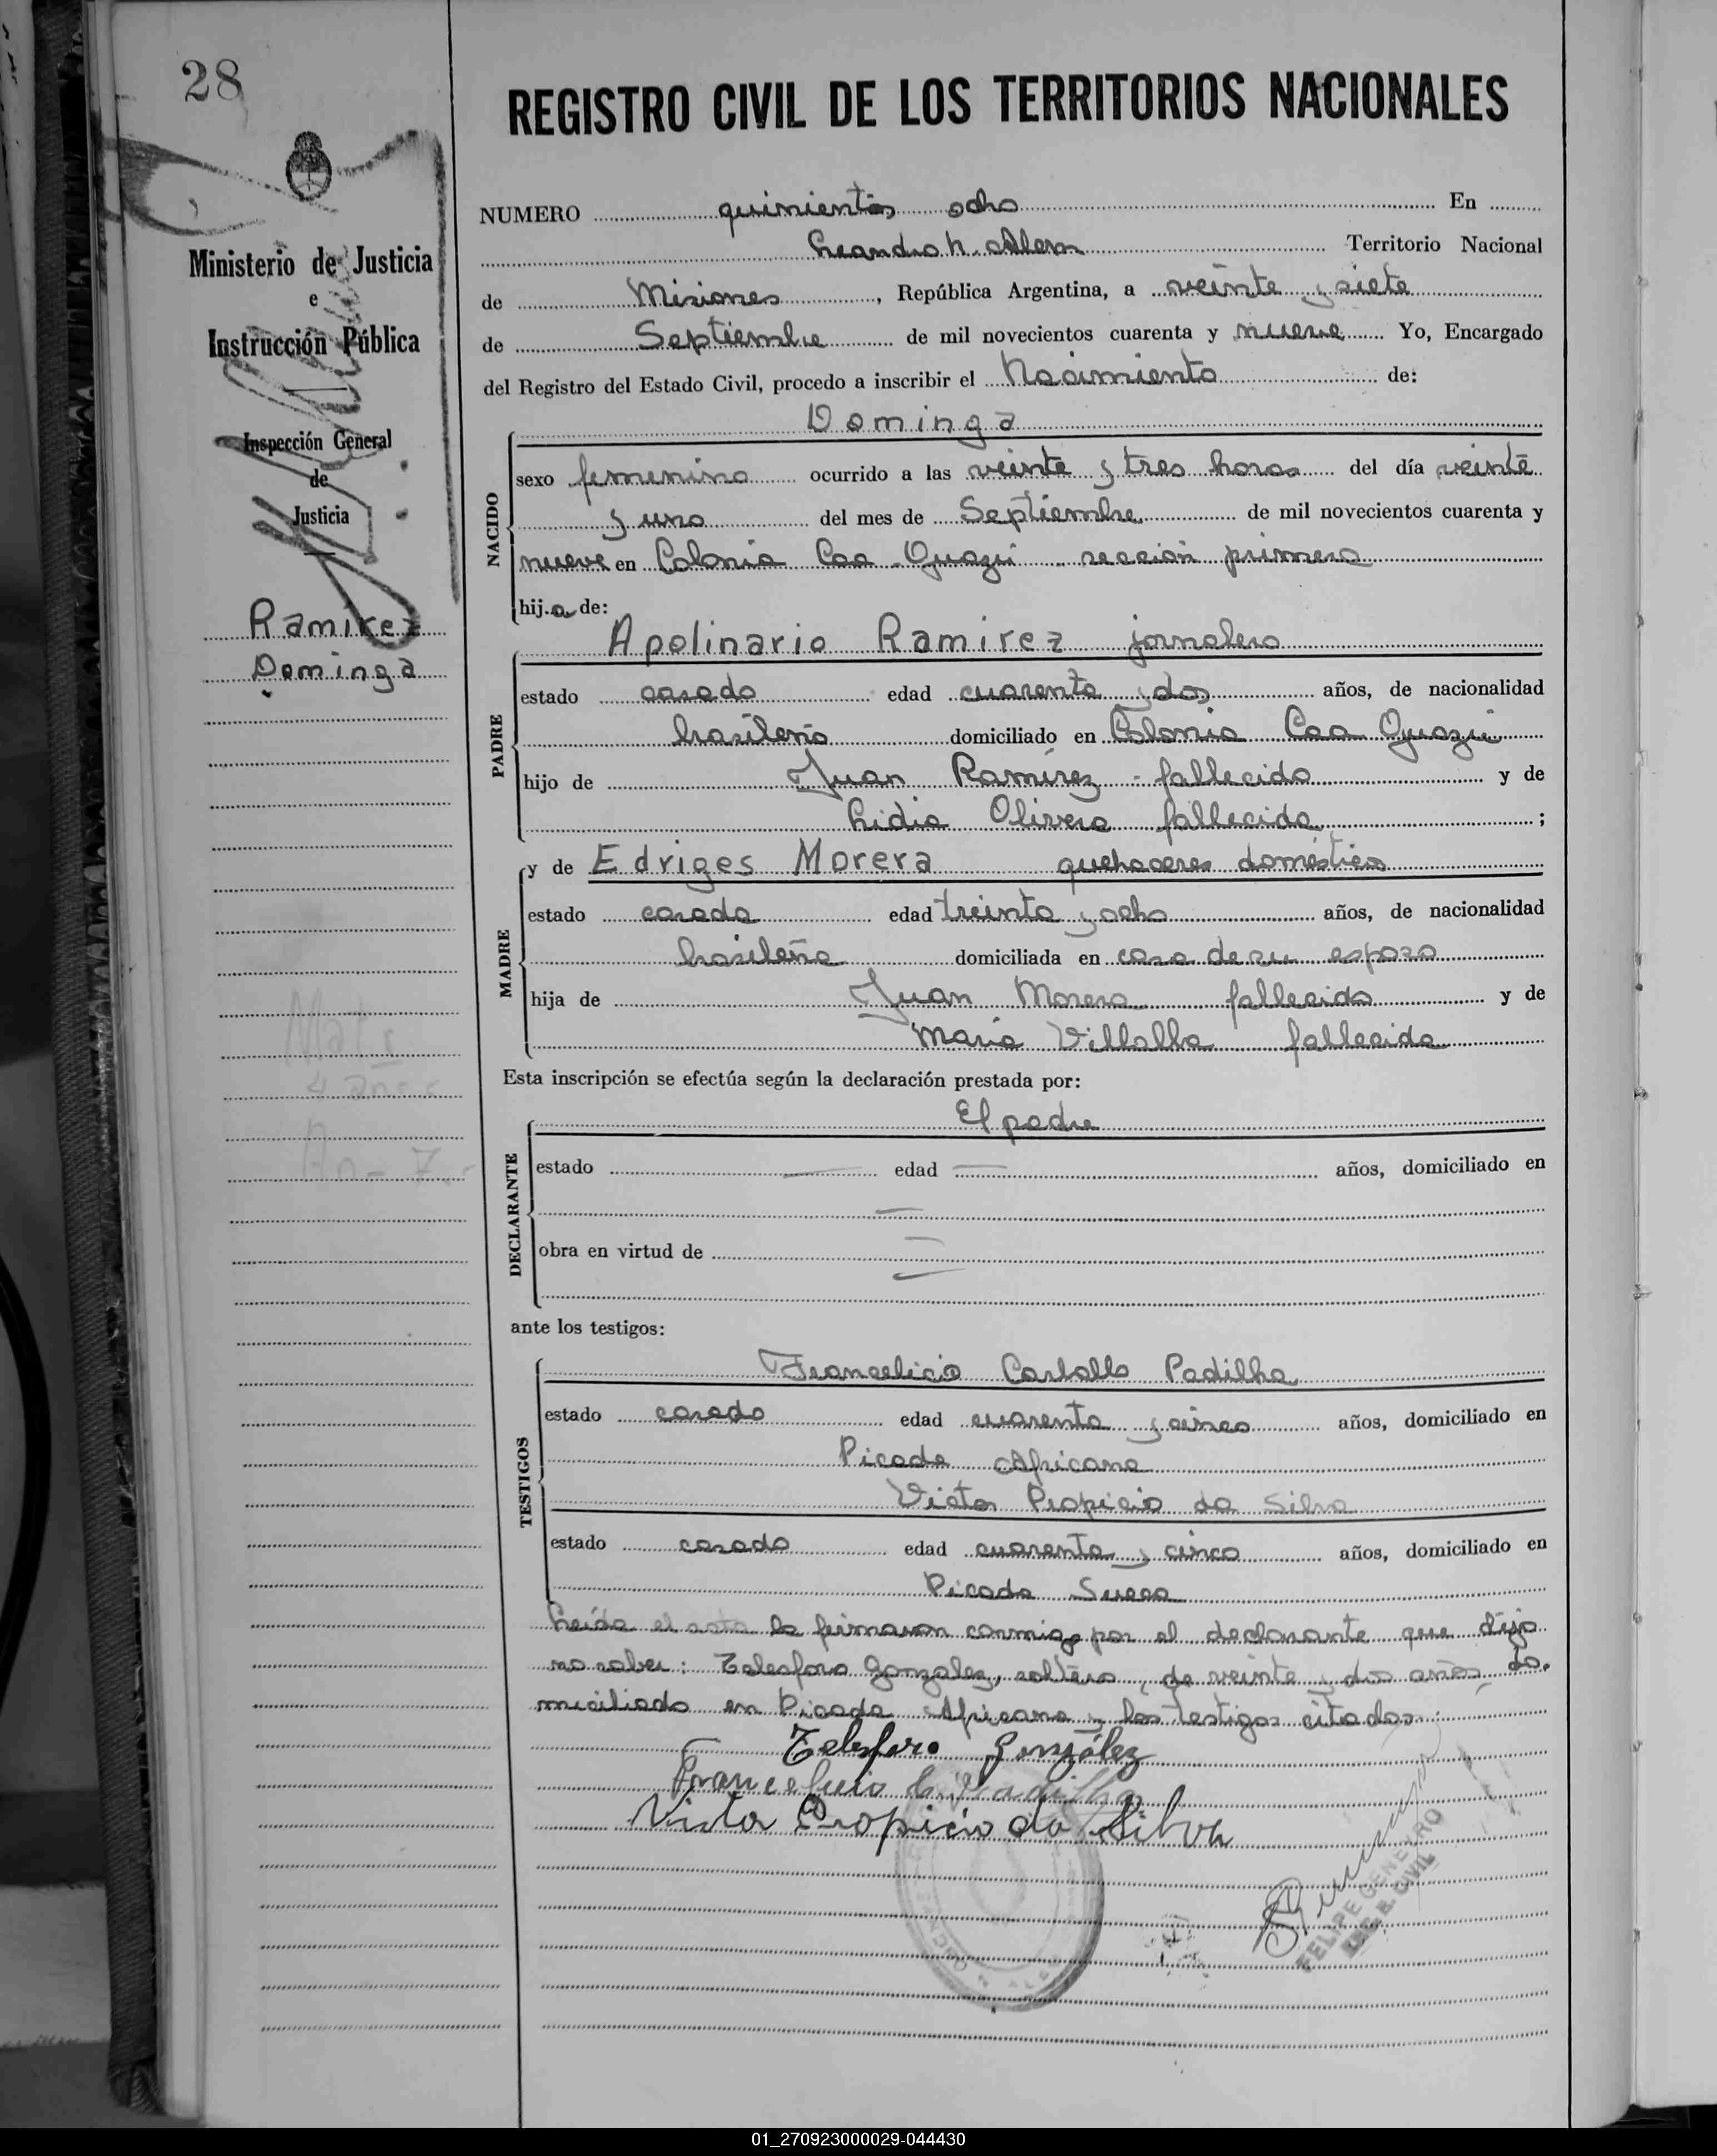 28
REGISTRO CIVIL DE LOS TERRITORIOS NACIONALES
Ministerio de Justicia
e
Instrucción Pública
Inspección General
de
Justicia
Ramírez
Dominga
NUMERO quinientos ocho En
Leandro N. Alem Territorio Nacional
de Misiones, República Argentina, a veinte y siete
de Septiembre de mil novecientos cuarenta y nueve Yo, Encargado
del Registro del Estado Civil, procedo a inscribir el Nacimiento de:
Dominga
NACIDO
sexo femenino ocurrido a las veinte y tres horas del día veinte
y uno del mes de Septiembre de mil novecientos cuarenta y
nueve en Colonia Caa Guazú sección primera
hija de:
Apolinario Ramirez jornalero
PADRE
estado casado edad cuarenta y dos años, de nacionalidad
brasileño domiciliado en Colonia Caa Guazú
hijo de Juan Ramírez - fallecido y de
Lidia Olivera fallecida ;
y de Edriges Morera quehaceres domésticos
MADRE
estado casada edad treinta y ocho años, de nacionalidad
brasileña domiciliada en casa de su esposo
hija de Juan Morera fallecido y de
María Villalba fallecida
Esta inscripción se efectúa según la declaración prestada por:
El padre
DECLARANTE
estado — edad — años, domiciliado en
—
obra en virtud de —
—
ante los testigos:
TESTIGOS
Francelicio Carballo Padilha
estado casado edad cuarenta y cinco años, domiciliado en
Picada Africana
Victor Propicio da Silva
estado casado edad cuarenta y cinco años, domiciliado en
Picada Sueca
Leída el acta la firmaron conmigo por el declarante que dijo
no saber: Telesforo Gonzalez, soltero, de veinte y dos años, do.
miciliado en Picada Africana y los testigos citados.
Telesforo González
Padilha
Victor Propicio da Silva
FELIPE GENEIRO
CIVIL
01_270923000029-044430